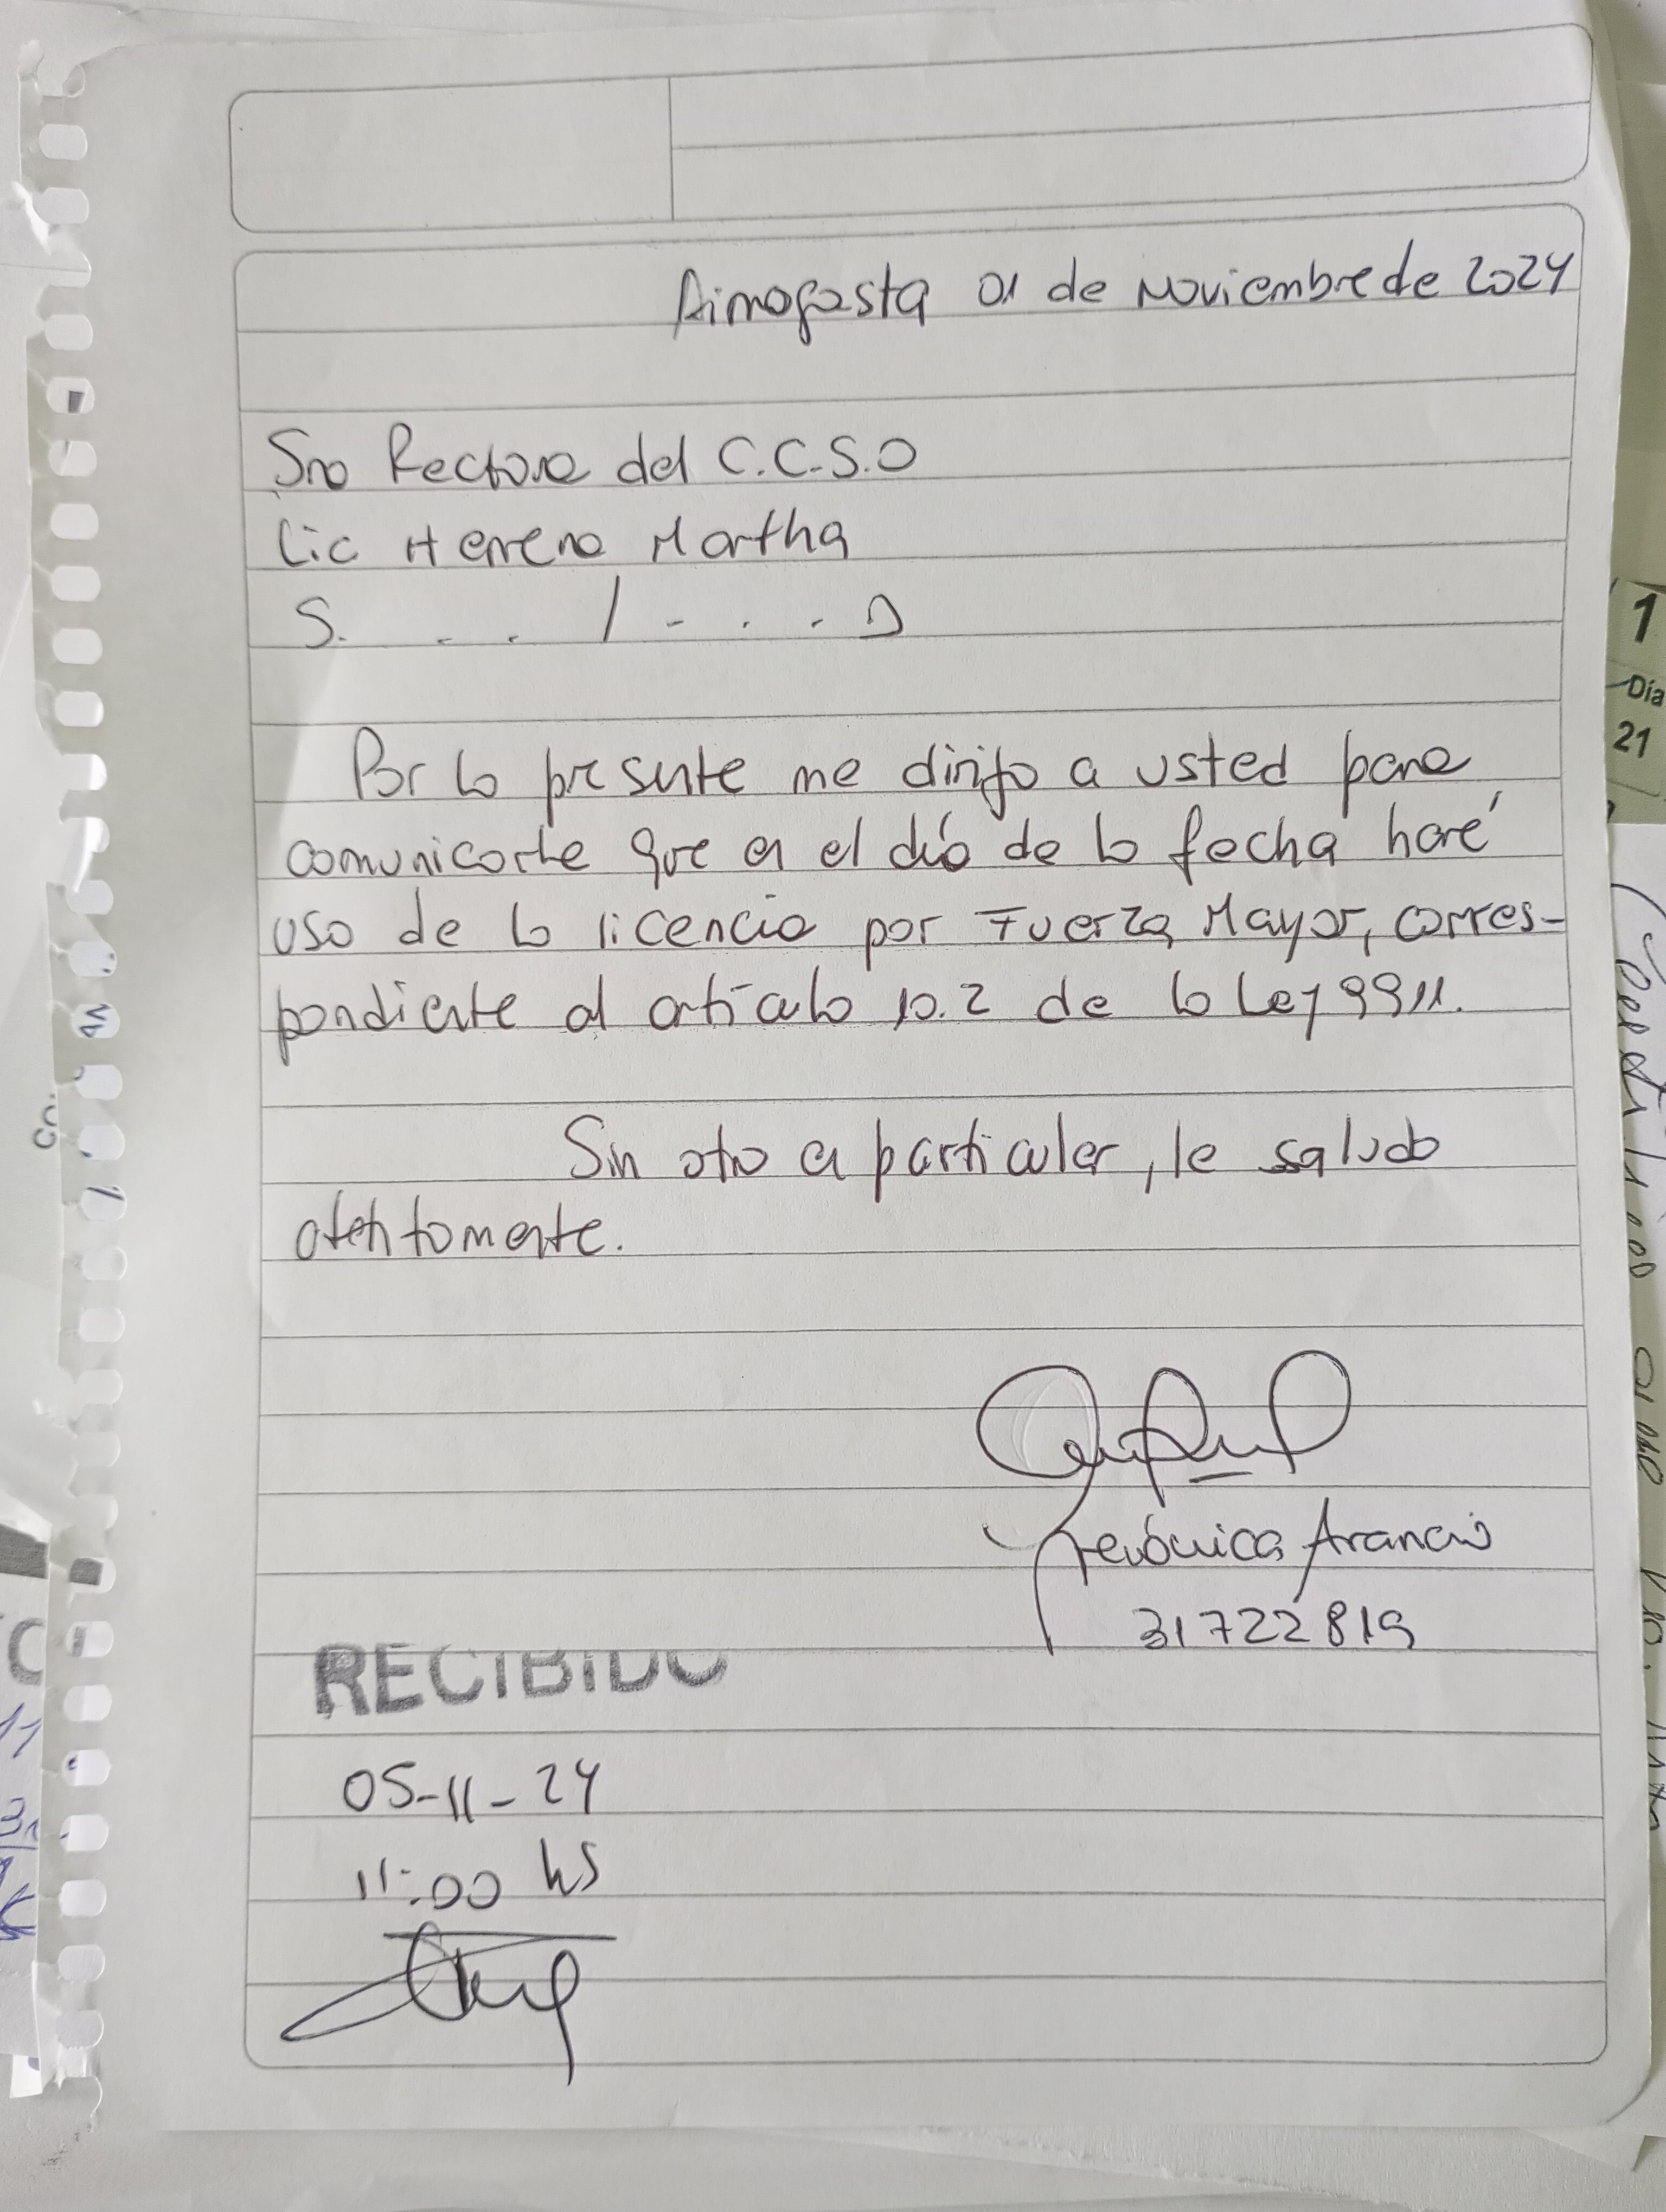 Aimogasta 01 de Noviembre de 2024
Sra Rectora del C.C.S.O
Lic Herrera Martha
S. . . / - . . . D
Por la presente me dirijo a usted para
comunicarle que en el día de la fecha haré
uso de la licencia por Fuerza Mayor, corres-
pondiente al artículo 10.2 de la Ley 9911.
Sin otro en particular, le saludo
atentamente.
Verónica Arancio
31722819
RECIBIDO
05-11-24
11:00 hs
1
Día
21